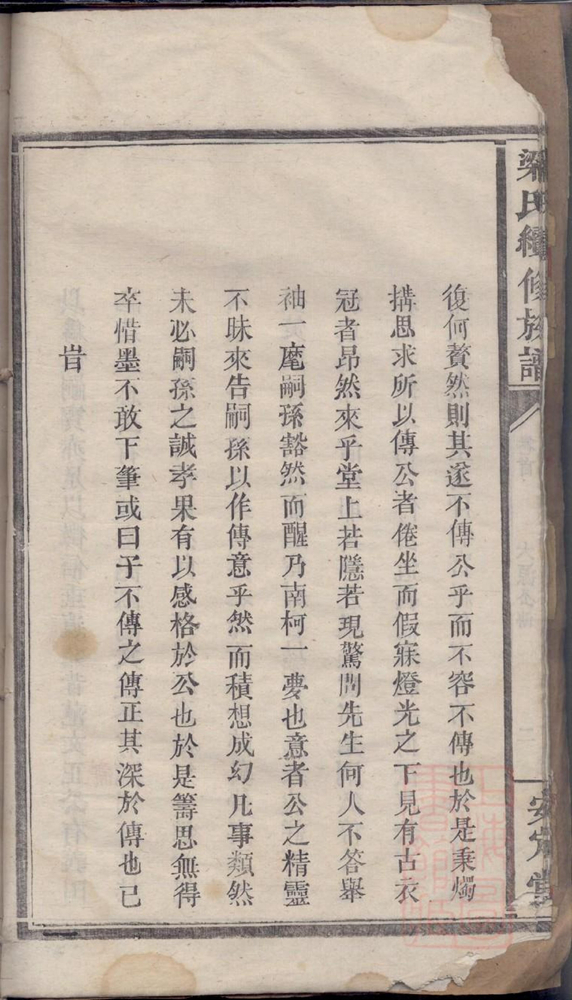 梁氏續修族譜
安定堂
復何贅然則其遂不傳公乎而不容不傳也於是秉燭
搆思求所以傳公者倦坐而假寐燈光之下見有古衣
冠者昂然來乎堂上若隱若現驚問先生何人不答舉
袖一麾嗣孫豁然而醒乃南柯一夢也意者公之精靈
不昧來告嗣孫以作傳意乎然而積想成幻凡事類然
未必嗣孫之誠孝果有以感格於公也於是籌思無得
卒惜墨不敢下筆或曰子不傳之傳正其深於傳也已
旹